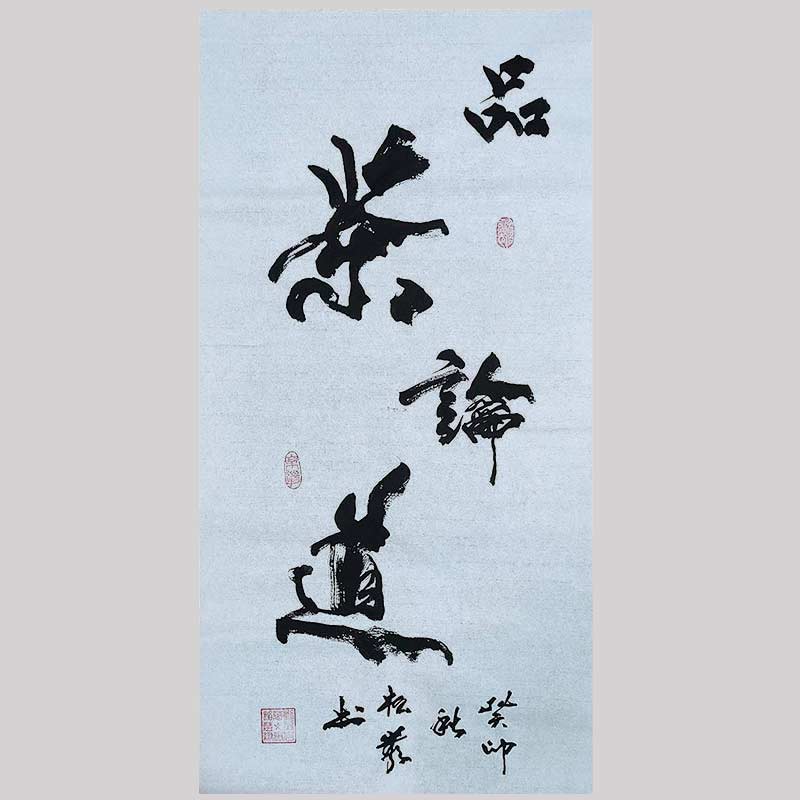 品
茶
論
道
癸卯
秋
松巖
书